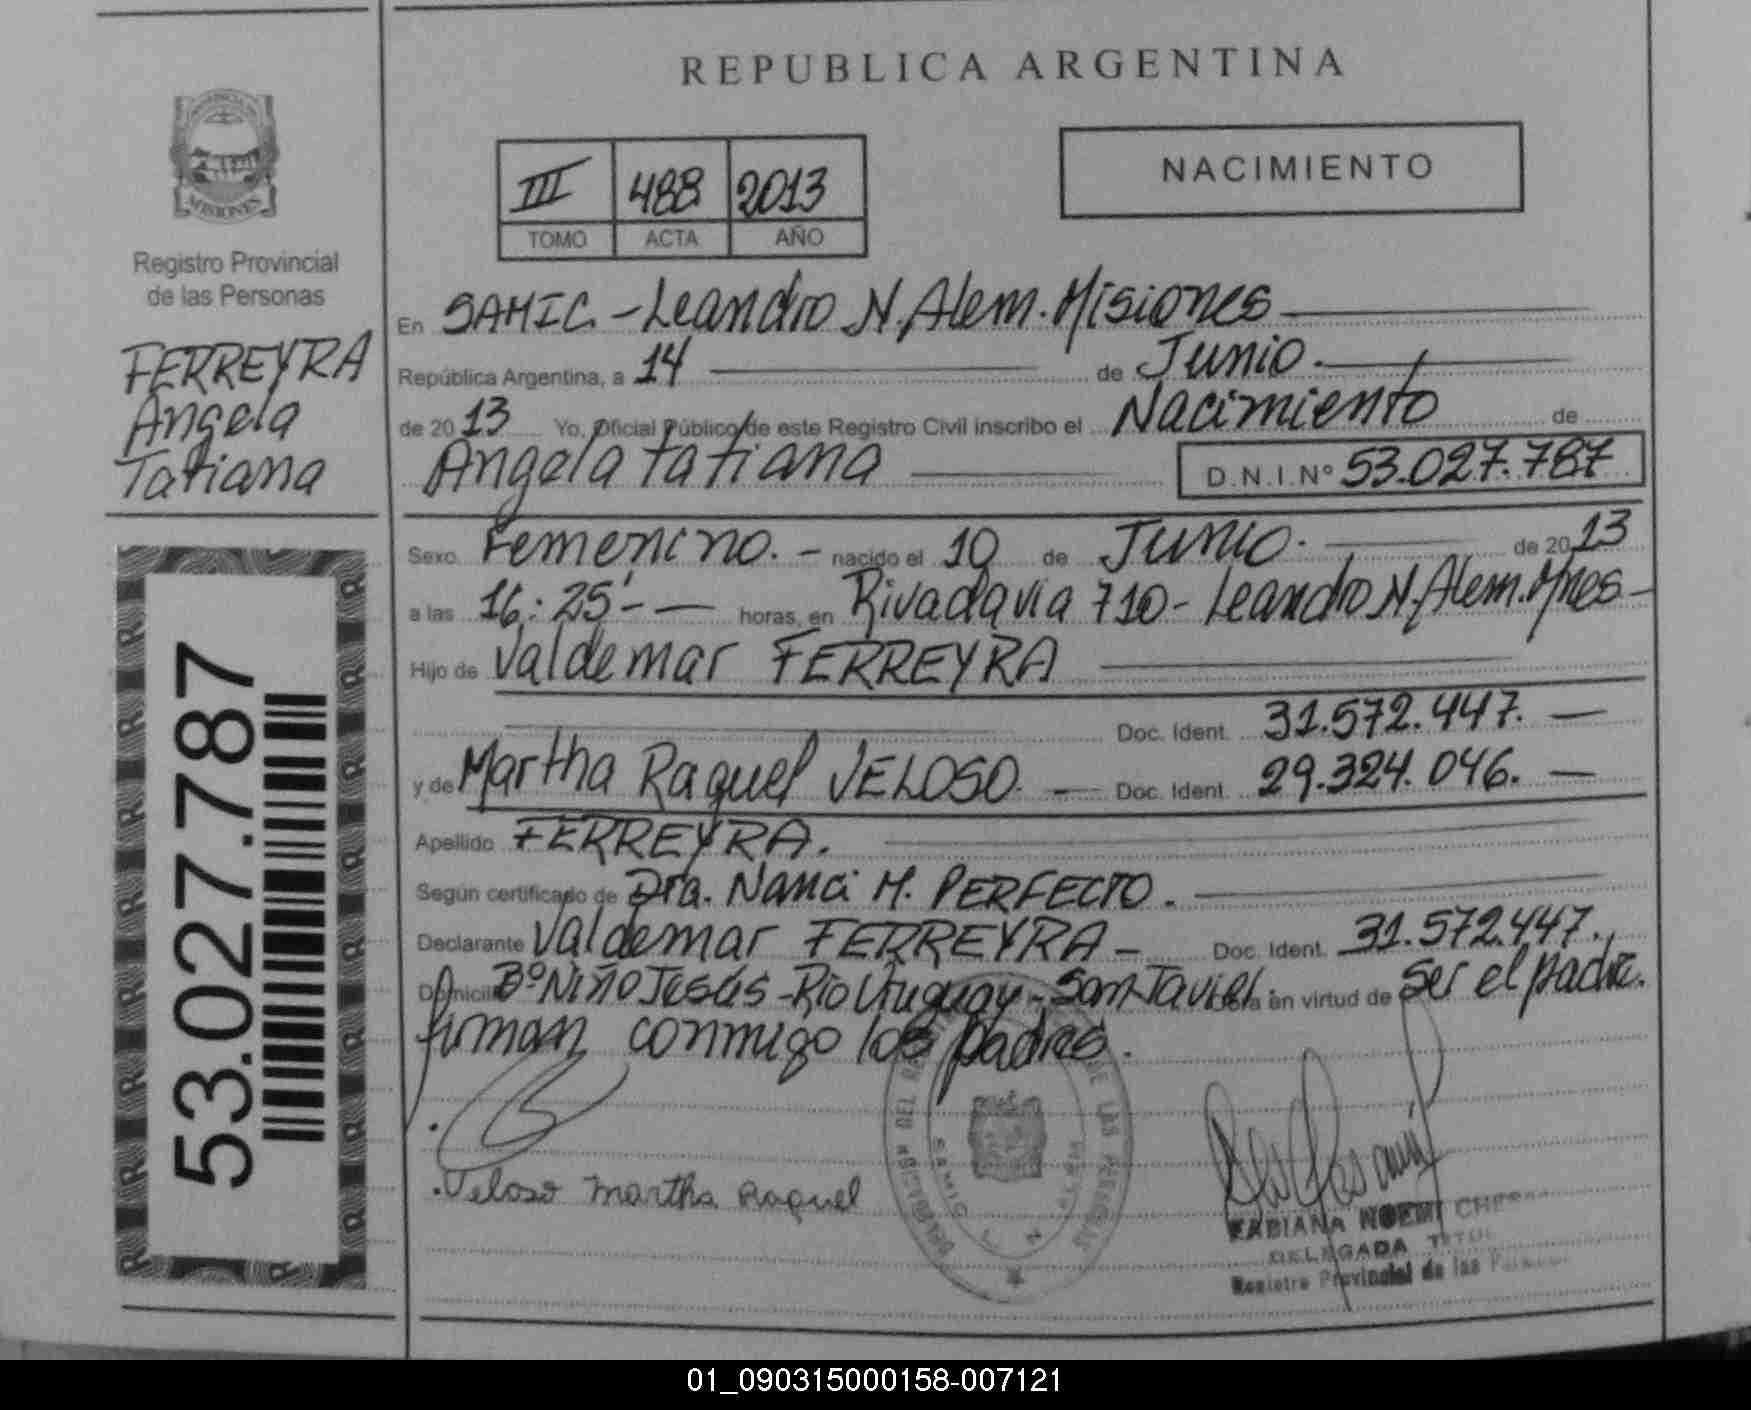 REPUBLICA ARGENTINA
PROVINCIA DE
MISIONES
Registro Provincial
de las Personas
FERREYRA
Angela
Tatiana
53.027.787
III 488 2013
TOMO ACTA AÑO
NACIMIENTO
En SAMIC - Leandro N. Alem. Misiones
República Argentina, a 14 de Junio.
de 2013 Yo, Oficial Público de este Registro Civil inscribo el Nacimiento de
Angela Tatiana D.N.I.Nº 53.027.787
Sexo Femenino. - nacido el 10 de Junio. de 2013
a las 16:25'- horas, en Rivadavia 710 - Leandro N. Alem. Mnes -
Hijo de Valdemar FERREYRA
Doc. Ident. 31.572.447. —
y de Martha Raquel VELOSO. — Doc. Ident. 29.324.046. —
Apellido FERREYRA.
Según certificado de Dra. Nanci M. PERFECTO.
Declarante Valdemar FERREYRA - Doc. Ident. 31.572.447.
Domicilio Bº Niño Jesús - Río Uruguay - San Javier. en virtud de Ser el padre.
firman conmigo los padres.
Veloso Martha Raquel
DEL LAS PERSONAS
SAMIC
L N ALEM
FABIANA NOEMI
DELEGADA
Registro Provincial de las
01_090315000158-007121